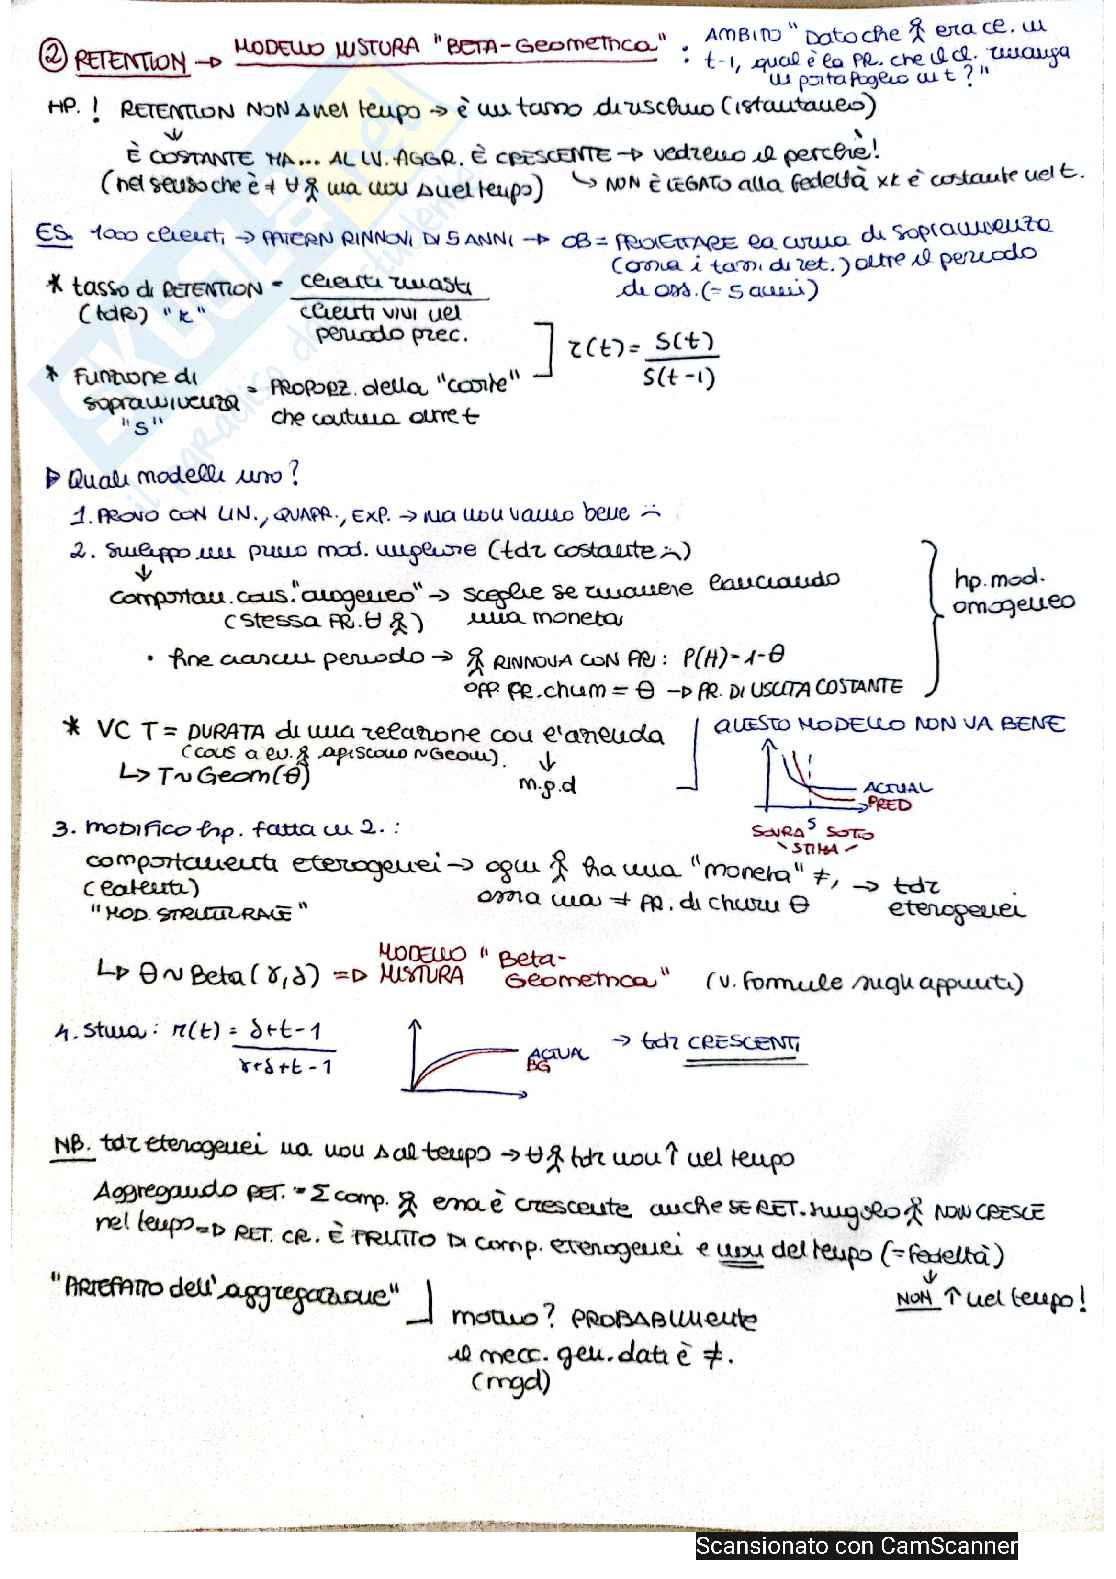 ② RETENTION → MODELLO MISTURA "BETA-Geometrica" : AMBITO "Dato che 웃 era ce. in
t-1, qual è la PR. che il cl. rimanga
in portafoglio in t?"
HP. ! RETENTION NON Δ nel tempo → è un tasso di rischio (istantaneo)
↓
È COSTANTE MA... AL LV. AGGR. È CRESCENTE → vedremo il perchè!
(nel senso che è ≠ ∀ 웃 ma non Δ nel tempo) ↳ NON È LEGATO alla fedeltà xk è costante nel t.
ES. 1000 clienti → PATTERN RINNOVI DI 5 ANNI → OB = PROIETTARE la curva di sopravvivenza
(ossia i tassi di ret.) oltre il periodo
di oss. (= 5 anni)
* tasso di RETENTION = clienti rimasti / clienti vivi nel periodo prec.
(tdR) "r"
* Funzione di sopravvivenza "S" = PROPORZ. della "coorte" che continua oltre t
r(t) = S(t) / S(t-1)
▷ Quali modelli uso?
1. PROVO CON LIN., QUADR., EXP. → ma non vanno bene :(
2. Sviluppo un primo mod. migliore (tdr costante :()
↓
comportam. cons. "omogeneo" → sceglie se rimanere lanciando
(stessa PR. ∀ 웃) una moneta
hp. mod.
omogeneo
· fine ciascun periodo → 웃 RINNOVA CON PR: P(H)-1-θ
OPP. PR. churn = θ → PR. DI USCITA COSTANTE
* VC T = DURATA di una relazione con l'azienda
(cons a ev. 웃 agiscono ~ Geom).
↳ T ~ Geom(θ)
↓
m.g.d
QUESTO MODELLO NON VA BENE
ACTUAL
PRED
5
SOVRA SOTTO
- STIMA -
3. modifico hp. fatta in 2. :
comportamenti eterogenei → ogni 웃 ha una "moneta" ≠, → tdr
(latenti) ossia una ≠ PR. di churn θ eterogenei
"MOD. STRUTTURALE"
↳ θ ~ Beta(γ,δ) ⇒ MODELLO MISTURA "Beta-Geometrica" (v. formule sugli appunti)
4. Stima: r(t) = δ+t-1 / γ+δ+t-1
ACTUAL
BG
→ tdr CRESCENTI
NB. tdr eterogenei ma non Δ al tempo → ∀ 웃 tdr non ↑ nel tempo
Aggregando RET. = Σ comp. 웃 essa è crescente anche SE RET. singolo 웃 NON CRESCE
nel tempo ⇒ RET. CR. È FRUTTO DI comp. eterogenei e non del tempo (= fedeltà)
↓
NON ↑ nel tempo!
"ARTEFATTO dell'aggregazione"
motivo? PROBABILMente
il mecc. gen. dati è ≠.
(mgd)
SKUOLA.net
il paradiso dello studente
Scansionato con CamScanner